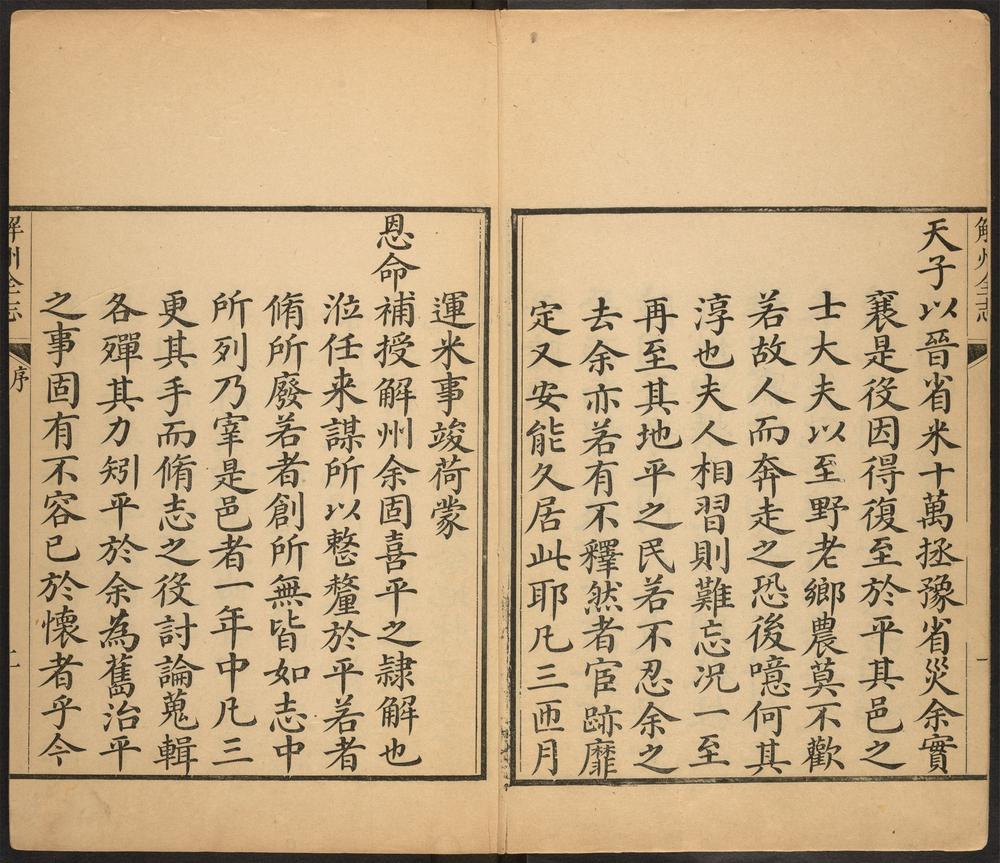 解州全志
一
天子以晉省米十萬拯豫省災余實
襄是役因得復至於平其邑之
士大夫以至野老鄉農莫不歡
若故人而奔走之恐後噫何其
淳也夫人相習則難忘况一至
再至其地平之民若不忍余之
去余亦若有不釋然者宦跡靡
定又安能久居此耶凡三匝月
運米事竣荷蒙
恩命補授解州余固喜平之隷解也
涖任来謀所以整釐於平若者
脩所廢若者創所無皆如志中
所列乃宰是邑者一年中凡三
更其手而脩志之役討論蒐輯
各殫其力矧平於余為舊治平
之事固有不容已於懷者乎今
解州全志
序
二